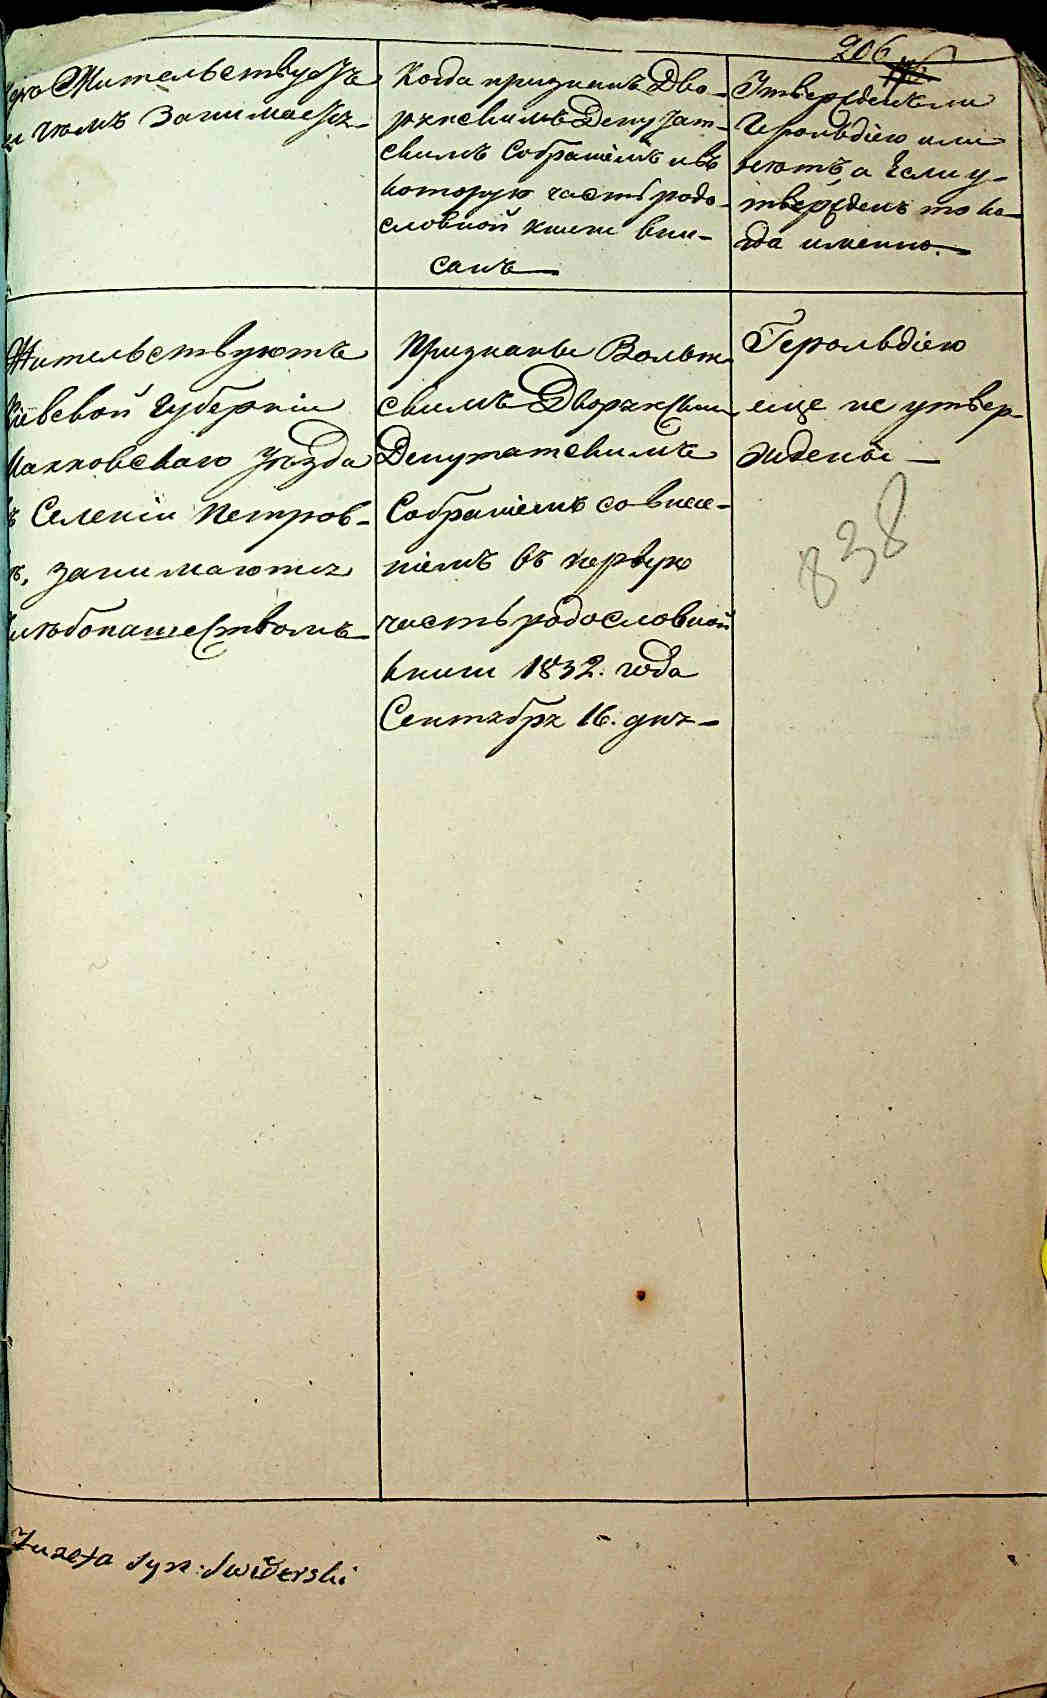 206
Жительствуетъ
и чѣмъ Занимается
Когда признанъ Дво-
рянскимъ Депутат-
скимъ Собраніемъ и въ
которую часть родо-
словной книги впи-
санъ
Утвержденъ ли
Герольдіею или
нѣтъ, а Если у-
твержденъ то ко-
гда именно.
Жительствуютъ
Кіевской Губерніи
Уѣзда
Селеніи Петров-
занимаются
хлѣбопашествомъ
Признаны Волын-
скимъ Дворянскимъ
Депутатскимъ
Собраніемъ со внесе-
ніемъ въ первую
часть родословной
книги 1832. года
Сентября 16. дня
Герольдіею
еще не утвер-
ждены
838
Juzefa syn: Swiderski